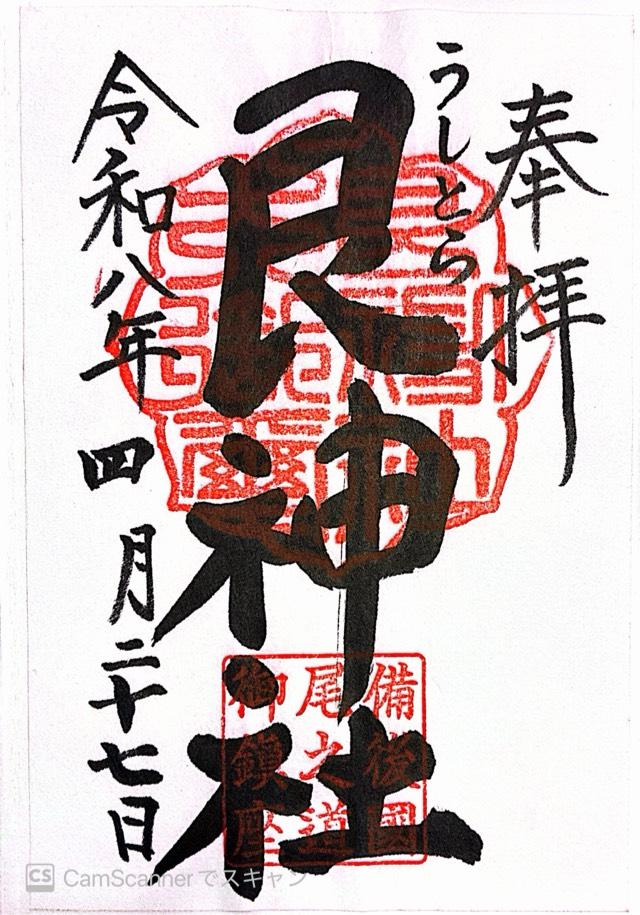 奉拝
うしとら
艮神社
令和八年 四月二十七日
備後國
尾之道
御鎮座
CS CamScanner でスキャン